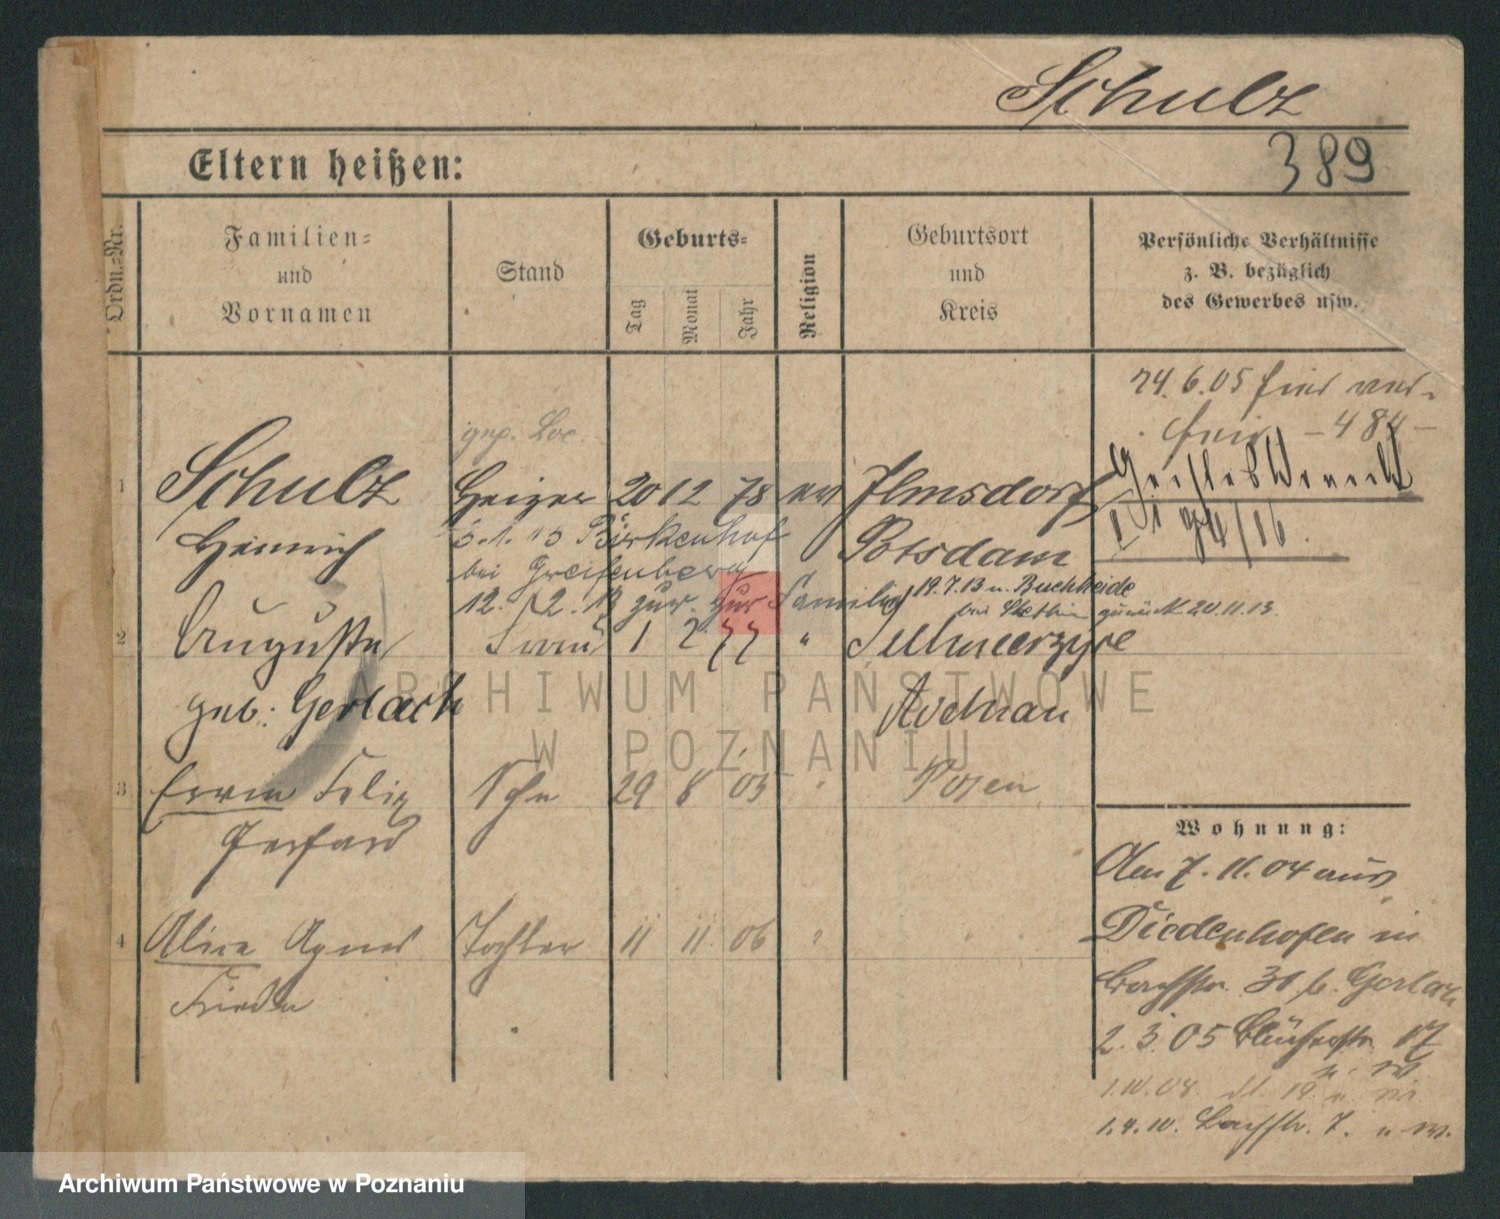 Schulz
389
Eltern heißen:
Ordn.-Nr.
Familien-
und
Vornamen
Stand
Geburts-
Tag
Monat
Jahr
Religion
Geburtsort
und
Kreis
Persönliche Verhältnisse
z. B. bezüglich
des Gewerbes usw.
24.6.05 hier
- 484 -
gesp. Loc.
1 Schulz Heizer 20 12 78 ev Ilmsdorf
Heinrich Potsdam
5.1.13 Birkenhof
bei Greifenberg
12. 2. 13 zur. zur Familie
19.7.13 n. Buchheide
bei Stettin zurück 20.11.13.
2 Auguste Frau 1 2 77 "
geb. Gerlach Adelnau
3 Erwin Felix Sohn 29 8 05 " Posen
Gerhard
4 Alice Agnes Tochter 11 11 06 "
Frieda
Wohnung:
Am 7.11.04 aus
Diedenhofen in
Bachstr. 31 b. Gerlach
2.3.05 Blücherstr. 17
1.10.08 19
1.4.10. Bachstr. 7.
ARCHIWUM PAŃSTWOWE
W POZNANIU
Archiwum Państwowe w Poznaniu